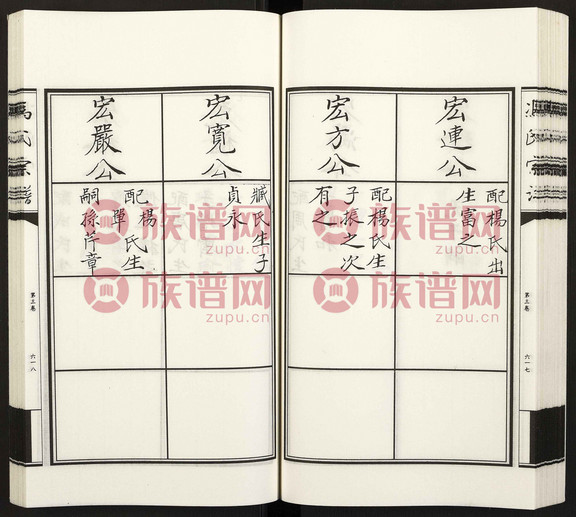 馮氏宗譜
第三卷
六一七
宏連公
配楊氏出
生富之
宏方公
配楊氏生
子振之次
有之
宏寬公
臧氏生子
貞永
宏嚴公
配楊氏生
單
嗣孫芹章
馮氏宗譜
第三卷
六一八
族谱网
zupu.cn
族谱网
zupu.cn
族谱网
zupu.cn
族谱网
zupu.cn